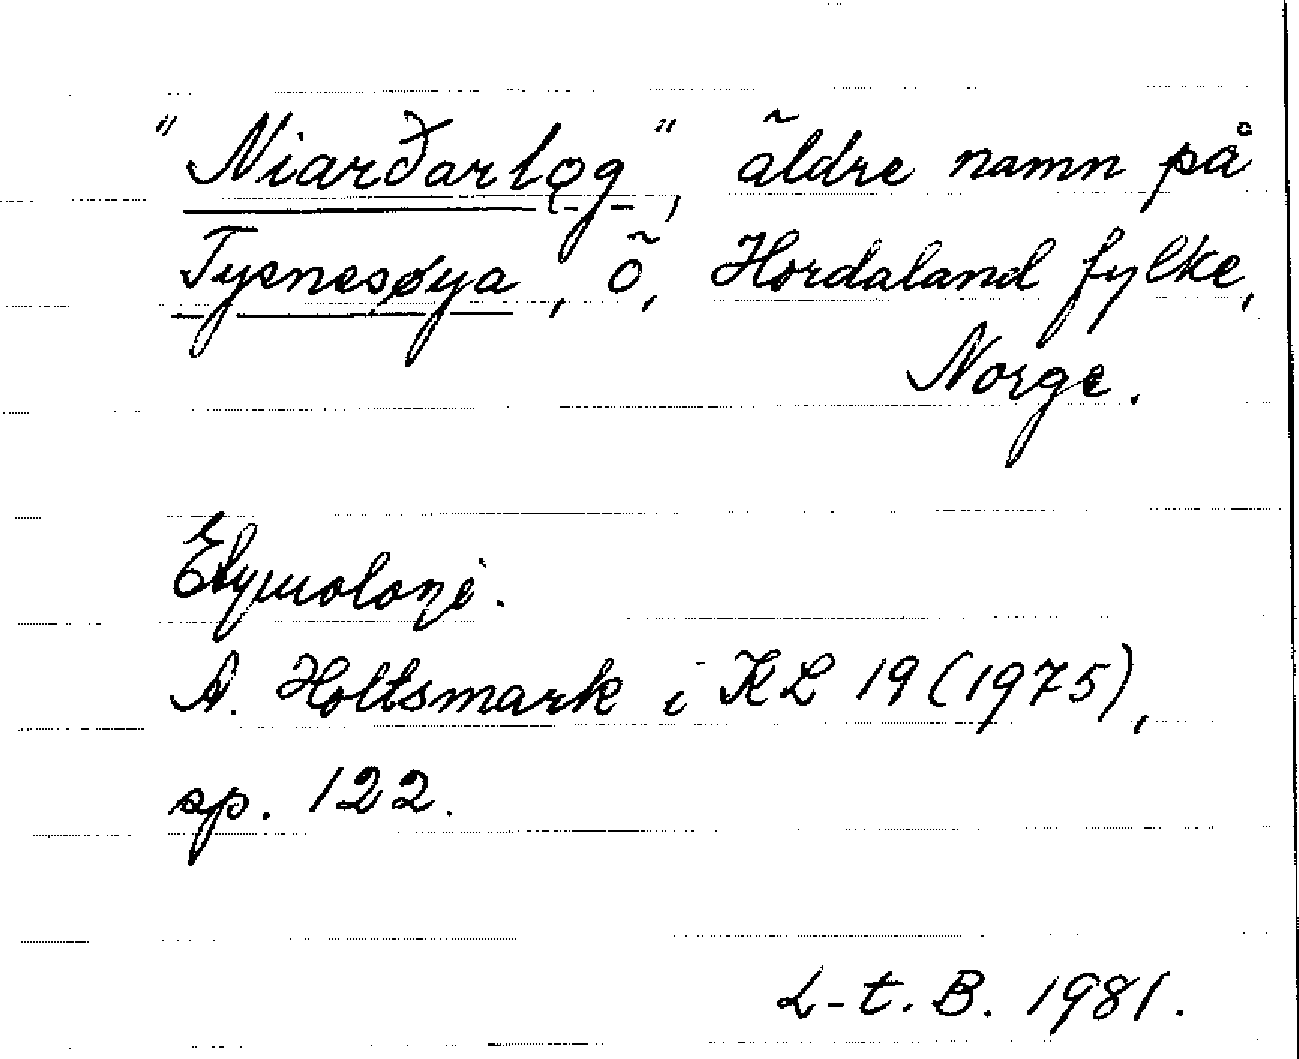 "Niarðarlǫg", äldre namn på
Tysnesøya, ö, Hordaland fylke,
Norge.
Etymologi.
A. Holtsmark i KL 19 (1975),
sp. 122.
L-t. B. 1981.